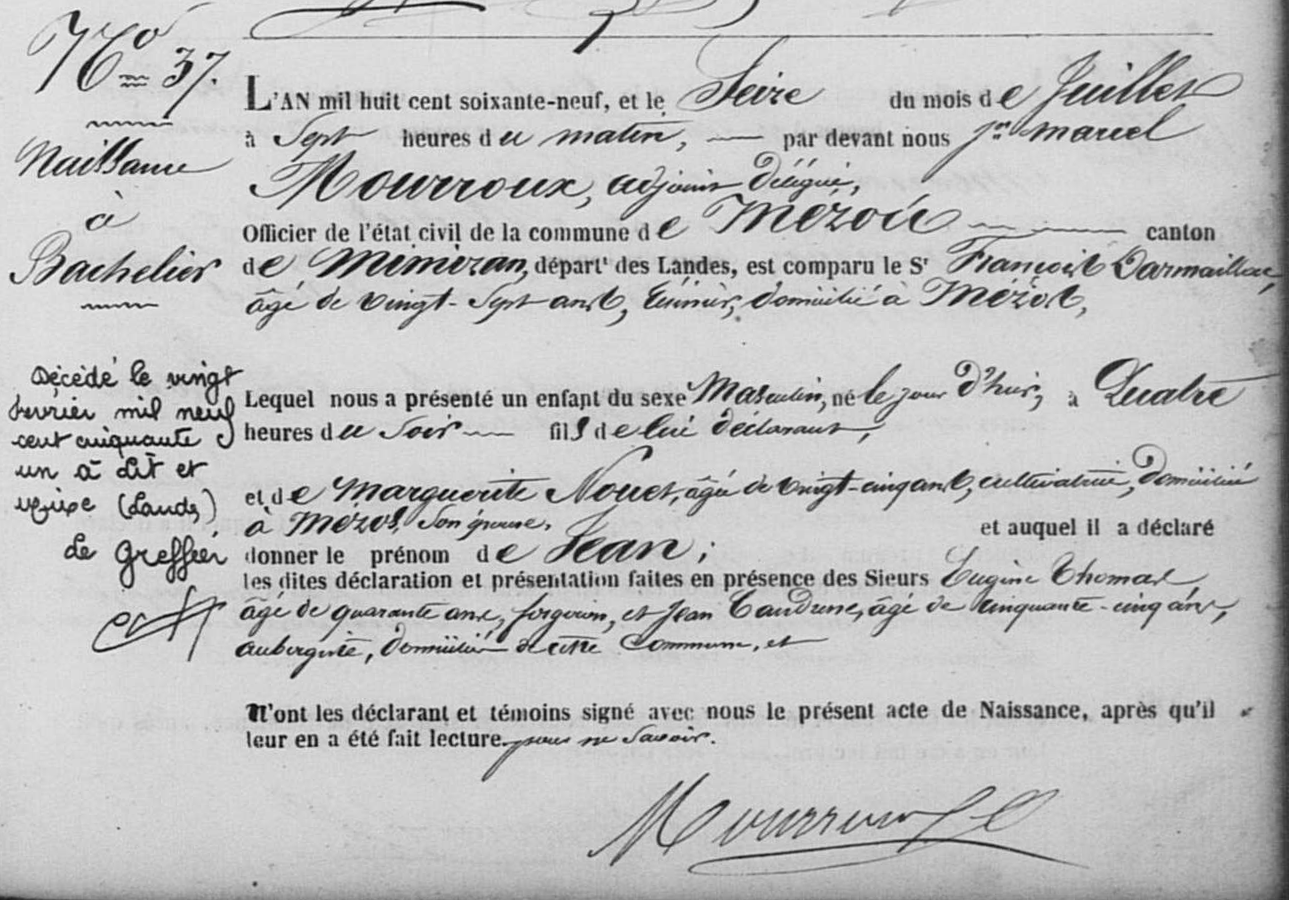 No 37.
Naissance
à
Bachelier
Décédé le vingt
février mil neuf
cent cinquante
un à Lit et
mixe (Landes)
Le Greffier
L'AN mil huit cent soixante-neuf, et le Seize du mois de Juillet
à Sept heures du matin, par devant nous Jn marcel
Mourroux, adjoint délégué,
Officier de l'état civil de la commune de Mézos canton
de Mimizan, départt des Landes, est comparu le Sr François Darmaillac,
âgé de vingt-Sept ans, domicilié à Mézos,
Lequel nous a présenté un enfant du sexe Masculin, né le jour d'hier, à Quatre
heures du Soir fils de lui déclarant,
et de Marguerite Nouet, âgée de vingt-cinq ans, cultivatrice, domiciliée
à Mézos, Son épouse, et auquel il a déclaré
donner le prénom de Jean;
les dites déclaration et présentation faites en présence des Sieurs Eugène Thomas
âgé de quarante ans, forgeron, et Jean âgé de cinquante-cinq ans,
aubergiste, domiciliés de cette Commune, et
N'ont les déclarant et témoins signé avec nous le présent acte de Naissance, après qu'il
leur en a été fait lecture. pour ne Savoir.
Mourroux